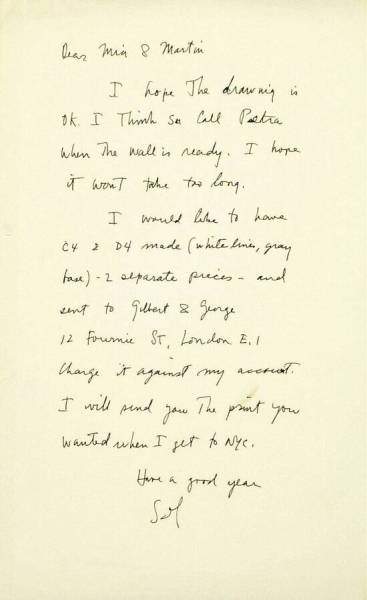 Dear Mia & Martin
I hope The drawing is
OK. I Think so Call Petra
when The wall is ready. I hope
it won't take too long.
I would like to have
C4 & D4 made (white lines, gray
base) - 2 separate pieces - and
sent to Gilbert & George
12 Fournie ST, London E.1
Charge it against my account.
I will send you The print you
wanted when I get to NYC.
Have a good year
Sol